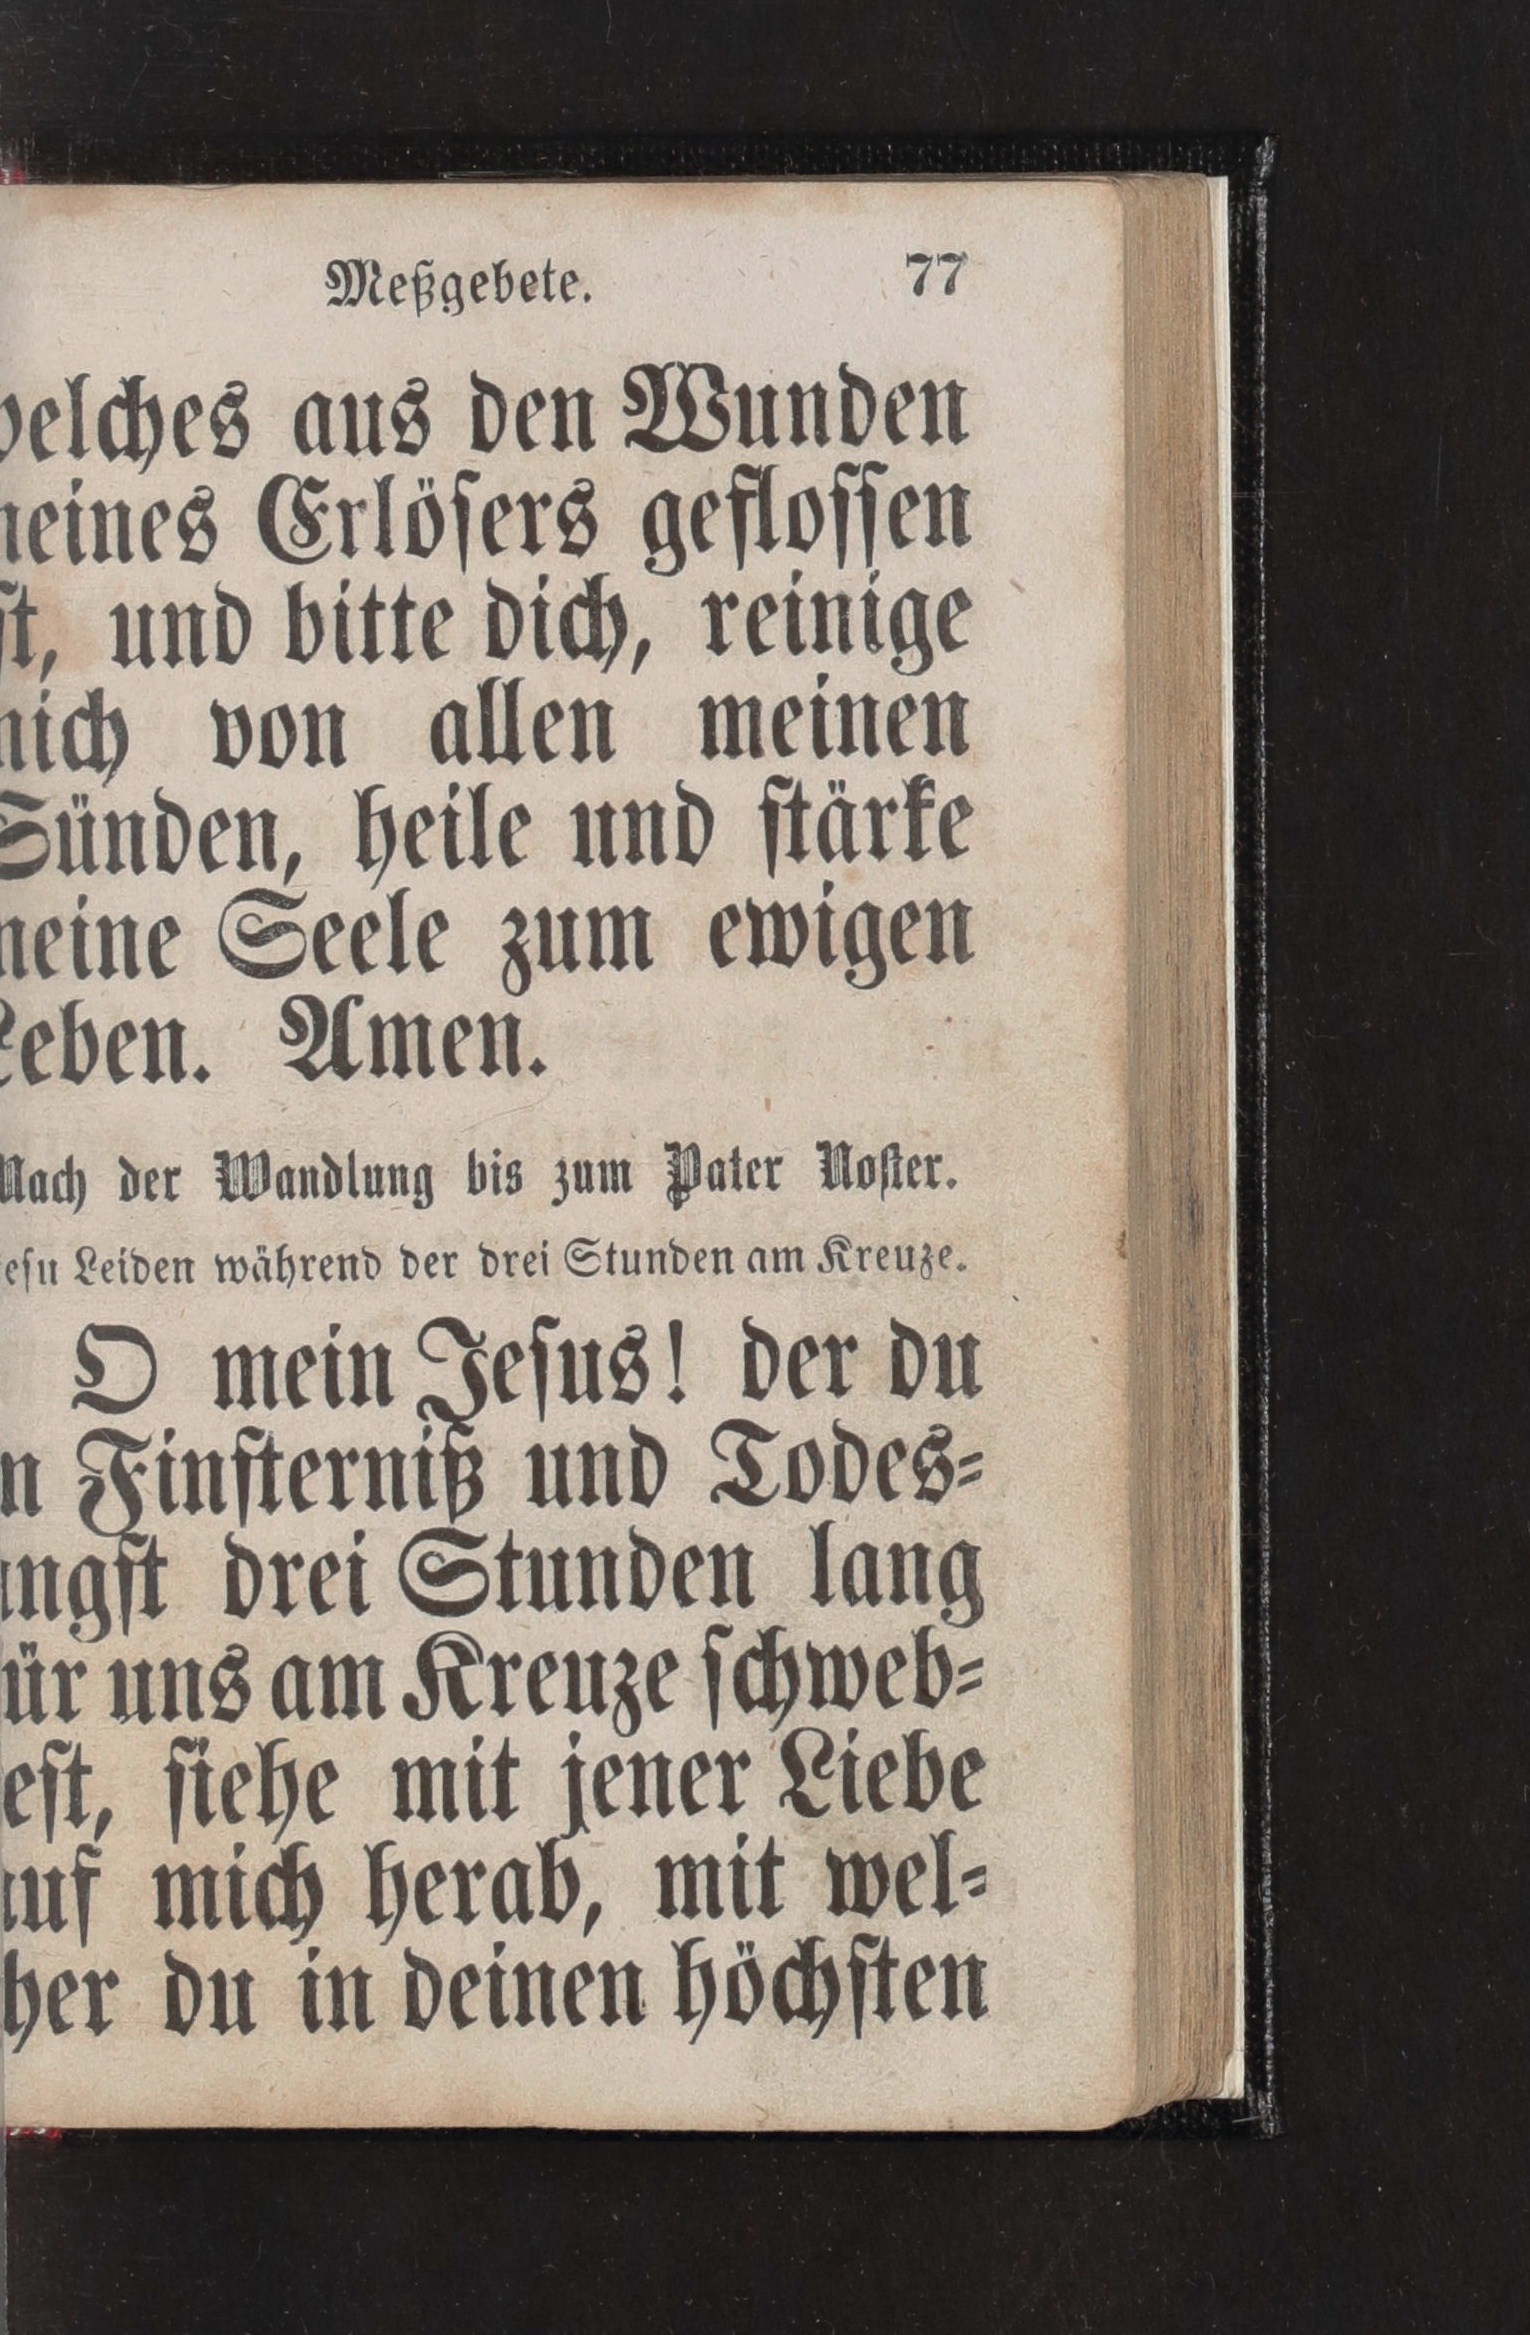 Meßgebete. 77
welches aus den Wunden
meines Erlösers geflossen
ist, und bitte dich, reinige
mich von allen meinen
Sünden, heile und stärke
meine Seele zum ewigen
Leben. Amen.
Nach der Wandlung bis zum Pater Noster.
Jesu Leiden während der drei Stunden am Kreuze.
O mein Jesus! der du
in Finsterniß und Todes-
angst drei Stunden lang
für uns am Kreuze schweb-
est, siehe mit jener Liebe
auf mich herab, mit wel-
cher du in deinen höchsten